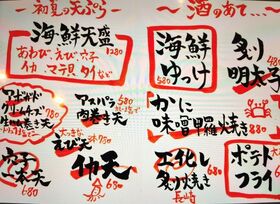 初夏の天ぷら
海鮮天盛
1280
あわび、えび、穴子
イカ、マテ貝、タイなど
アボガド
クリームチーズ
生ハム巻き天
アスパラ
肉巻き天
大っきな
えび天
780
穴子
一本天
680
イカ天
680
酒のあて...
海鮮
ゆっけ
580
炙り
明太子
680
かに
味噌甲羅焼き
880
エイヒレ
炙り焼き
長崎
680
ポテト
フライ
680